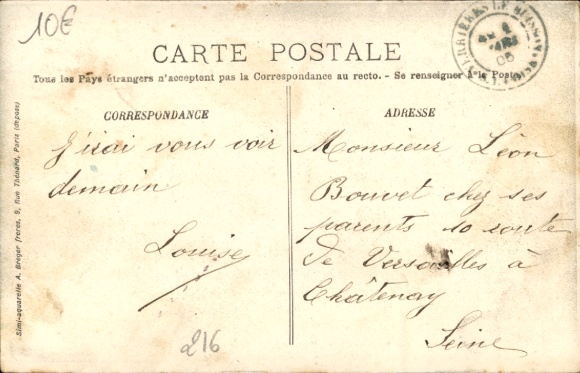 10€
VERRIÈRES LE BUISSON
05
CARTE POSTALE
Tous les Pays étrangers n'acceptent pas la Correspondance au recto. - Se renseigner à la Poste
CORRESPONDANCE
J'irai vous voir
demain
Louise
216
ADRESSE
Monsieur Léon
Bouvet chez ses
parents 10 route
de Versailles à
Châtenay
Seine
Simi-aquarelle A. Breger frères, 9, Rue Thénard, Paris (déposé)